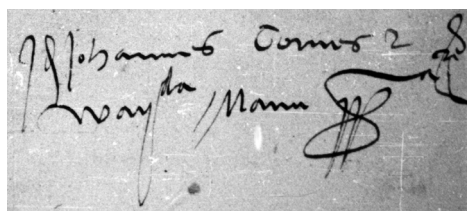 Johannes Comes 2
wayda Manu ppa